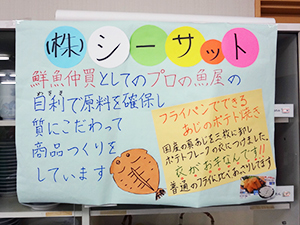 (株)シーサット
鮮魚仲買としてのプロの魚屋の
目利で原料を確保し
質にこだわって
商品つくりを
しています
フライパンでできる
あじのポテト焼き
国産の真あじを三枚におろし
ポテトフレークの衣につけました。
衣がお芋なんです!!
普通のフライに比べあっさりです